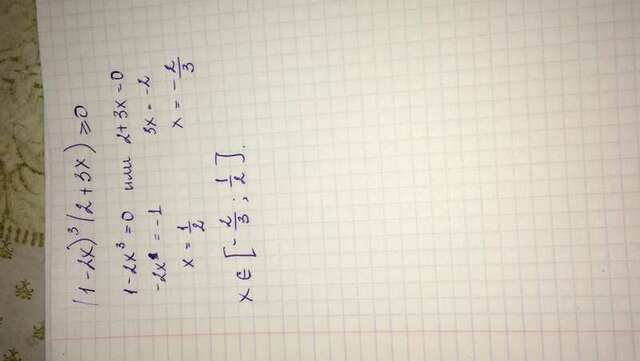 (1-2x)³(2+3x)≥0
1-2x³=0 или 2+3x=0
-2x=-1 3x=-2
x=1/2 x=-2/3
x∈[-2/3; 1/2].